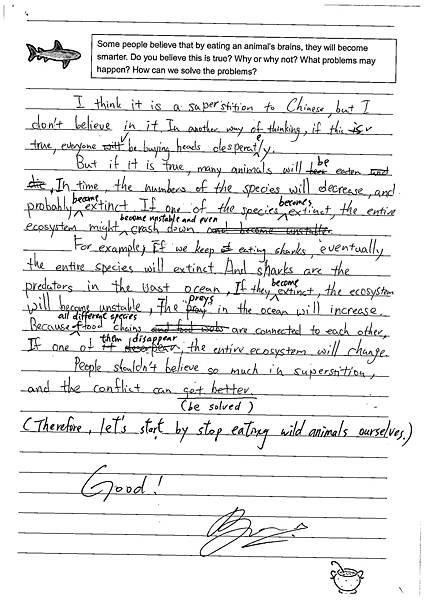 Some people believe that by eating an animal's brains, they will become
smarter. Do you believe this is true? Why or why not? What problems may
happen? How can we solve the problems?
I think it is a superstition to Chinese, but I
don't believe in it. In another way of thinking, if this is
true, everyone will be buying heads desperately.
But if it is true, many animals will be eaten and
die, In time, the numbers of the species will decrease, and
probably become extinct. If one of the species becomes extinct, the entire
ecosystem might become unstable and even crash down and become unstable.
For example, If we keep eating sharks, eventually
the entire species will extinct. And sharks are the
predators in the wast ocean, If they become extinct, the ecosystem
will become unstable, The preys in the ocean will increase.
Because all different species food chains and food webs are connected to each other,
If one of them disappear, the entire ecosystem will change.
People shouldn't believe so much in superstition,
and the conflict can get better.
(be solved)
(Therefore, let's start by stop eating wild animals ourselves.)
Good!